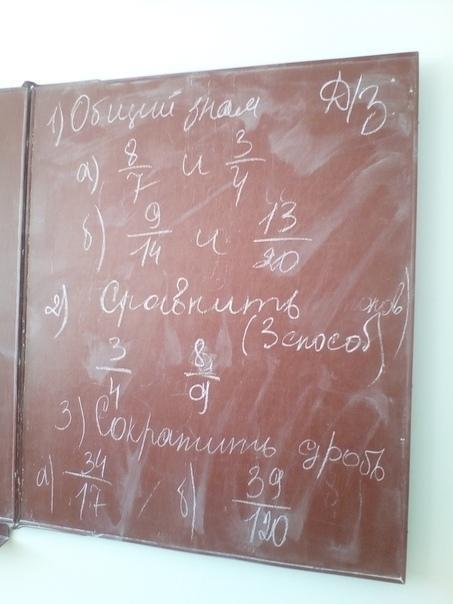 1) Общий знам Д/З
а) 8/7 и 3/4
б) 9/14 и 13/20
2) Сравнить
(3 способ ов)
3/4 8/9
3) Сократить дробь
а) 34/17 б) 39/120